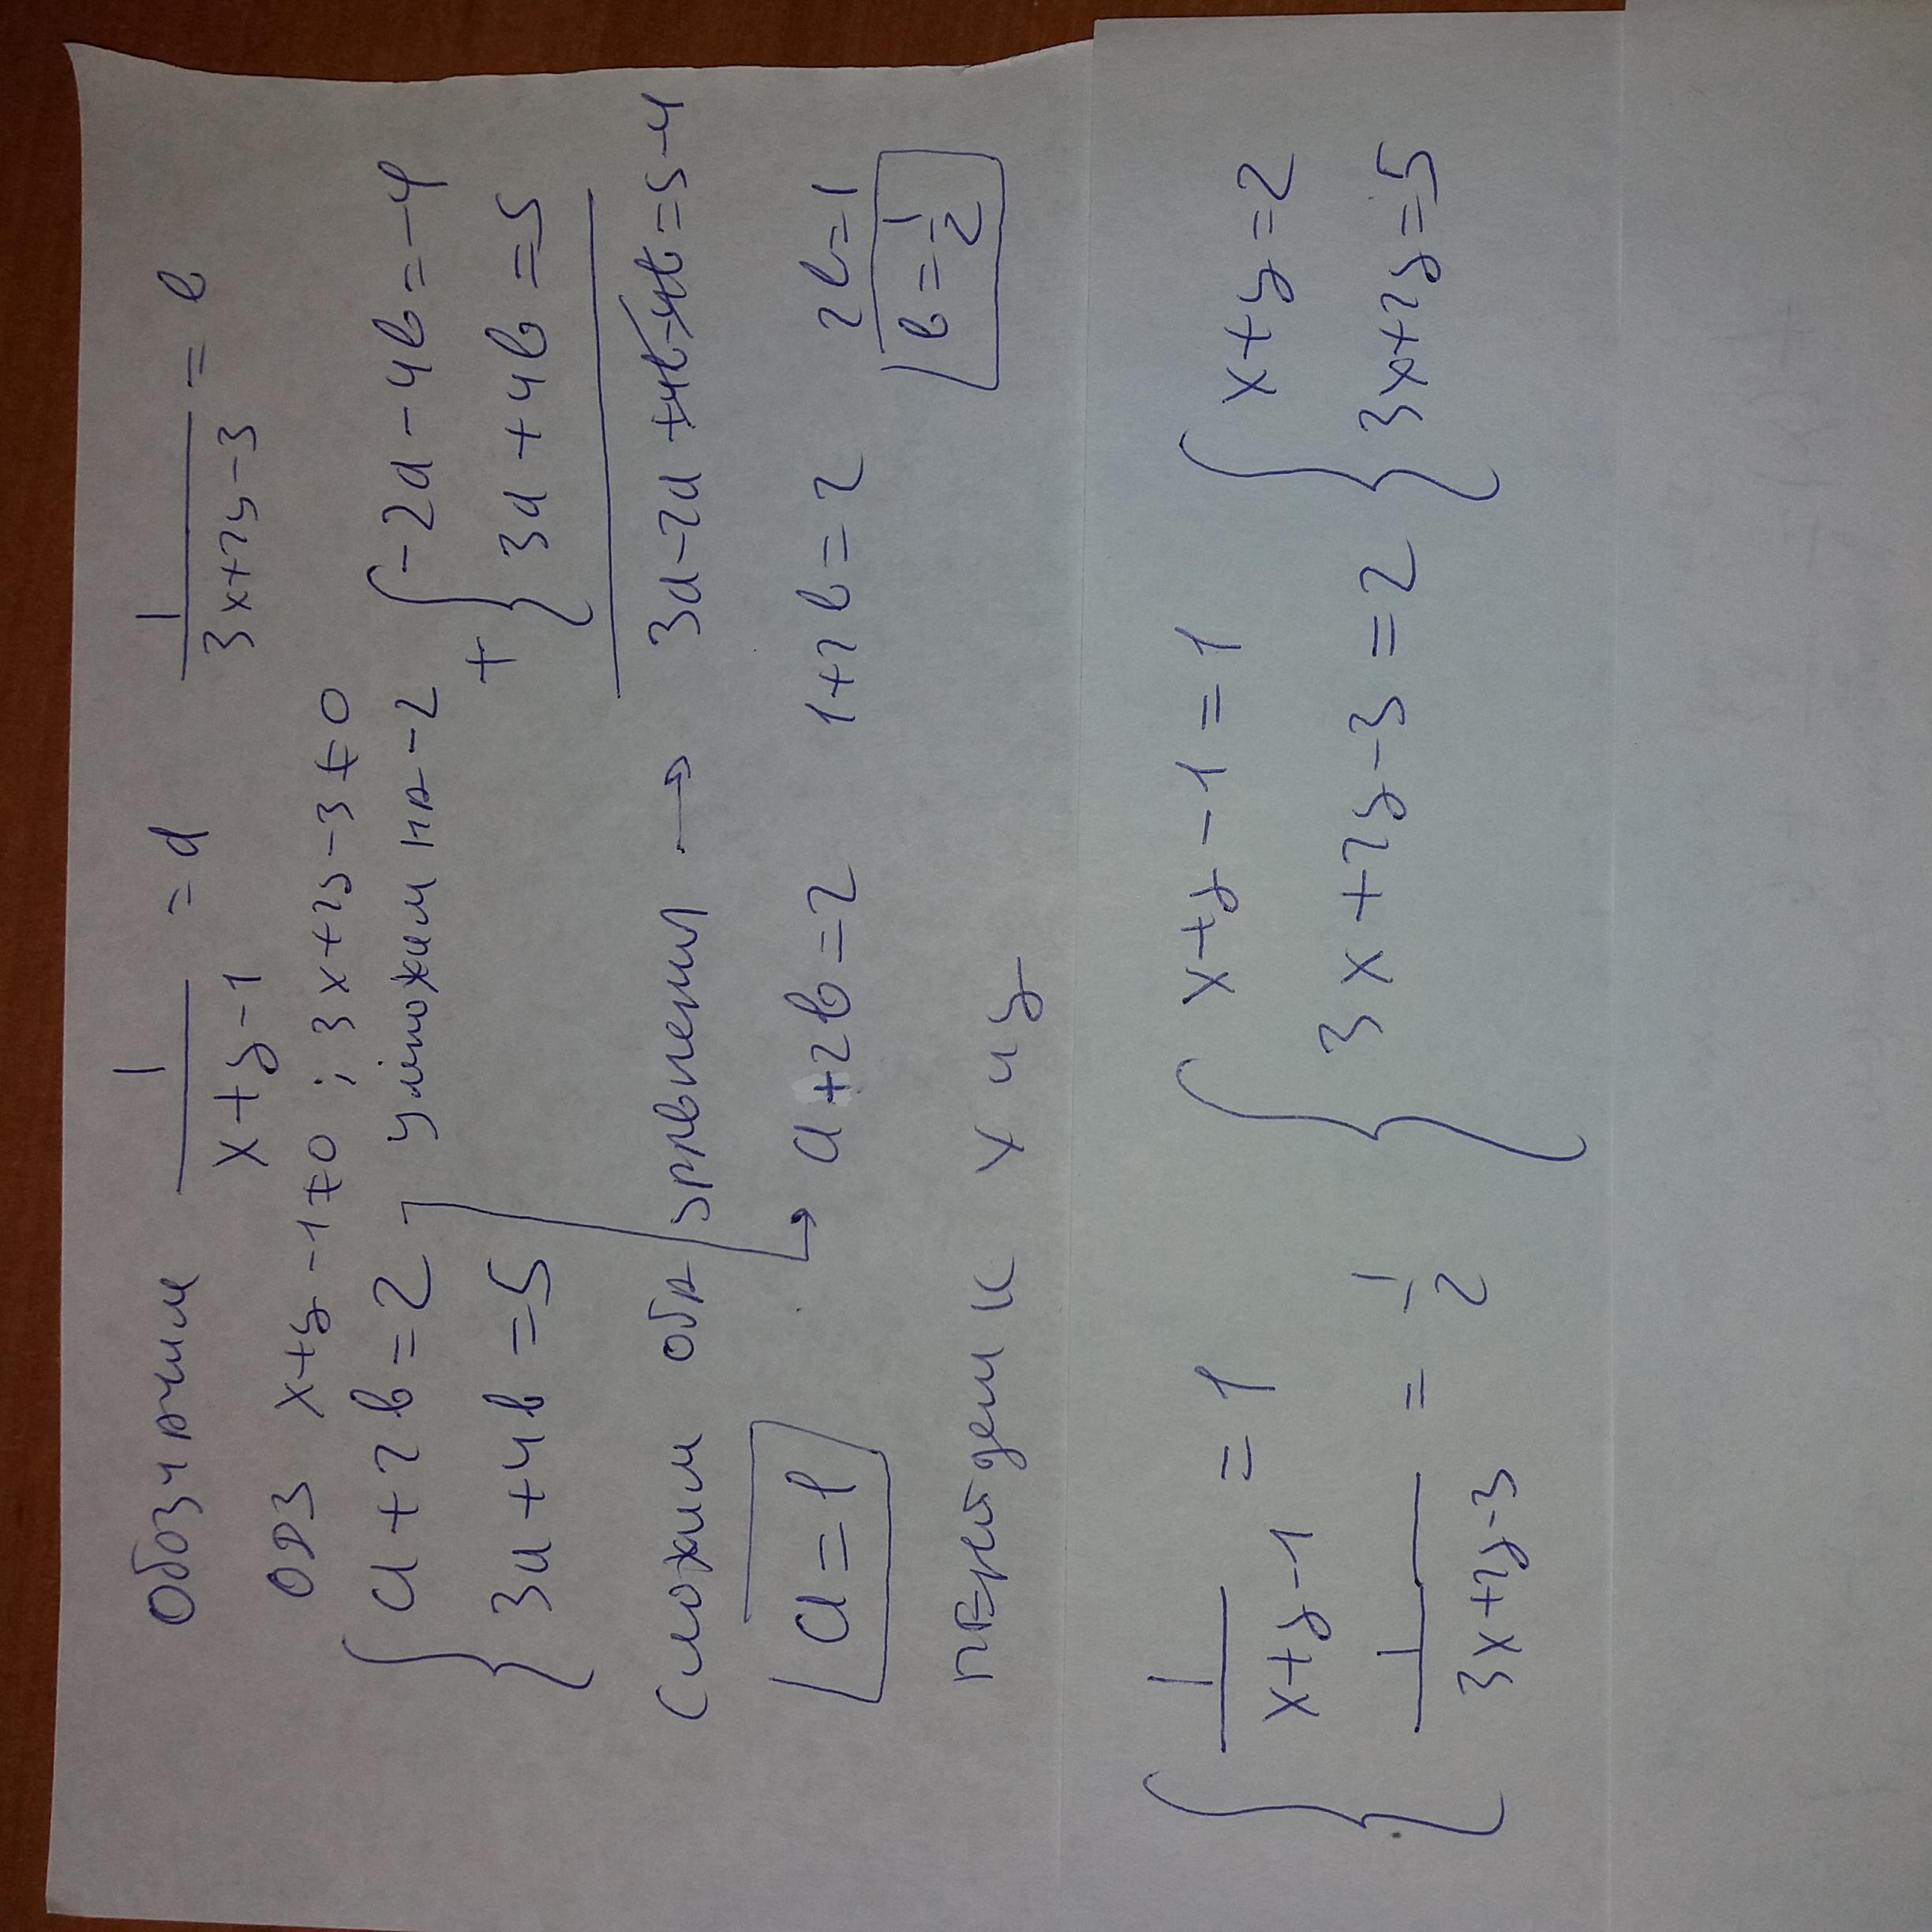 Обозначим 1/(x+y-1) = a 1/(3x+2y-3) = b
ОДЗ x+y-1≠0 ; 3x+2y-3≠0
{ a+2b=2 умножим на -2 { -2a-4b=-4
3a+4b=5 + 3a+4b=5
Сложим оба уравнения → 3a-2a+4b-4b=5-4
a=1 a+2b=2 1+2b=2 2b=1
b=1/2
перейдем к x и y
{ 1/(x+y-1) = 1 { x+y-1=1 { x+y=2
1/(3x+2y-3) = 1/2 3x+2y-3=2 3x+2y=5